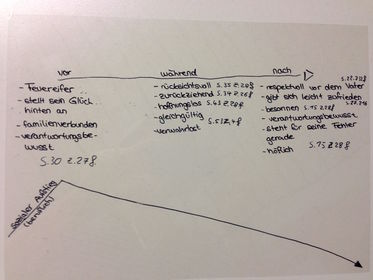 vor
- Feuereifer
- stellt sein Glück
hinten an
- familienverbunden
- verantwortungsbe-
wusst
S.30 Z.27f
während
- rücksichtsvoll S.35 Z.28f
- zurückziehend S.34 Z.26f
- hoffnungslos S.43 Z.28f
- gleichgültig
- verwahrlost
nach
- respektvoll vor dem Vater
- gibt sich leicht zufrieden
- besonnen S.75 Z.28f
- verantwortungsbewusst
- steht für seine Fehler
gerade
- höflich S.75 Z.28f
sozialer Aufstieg
(beruflich)